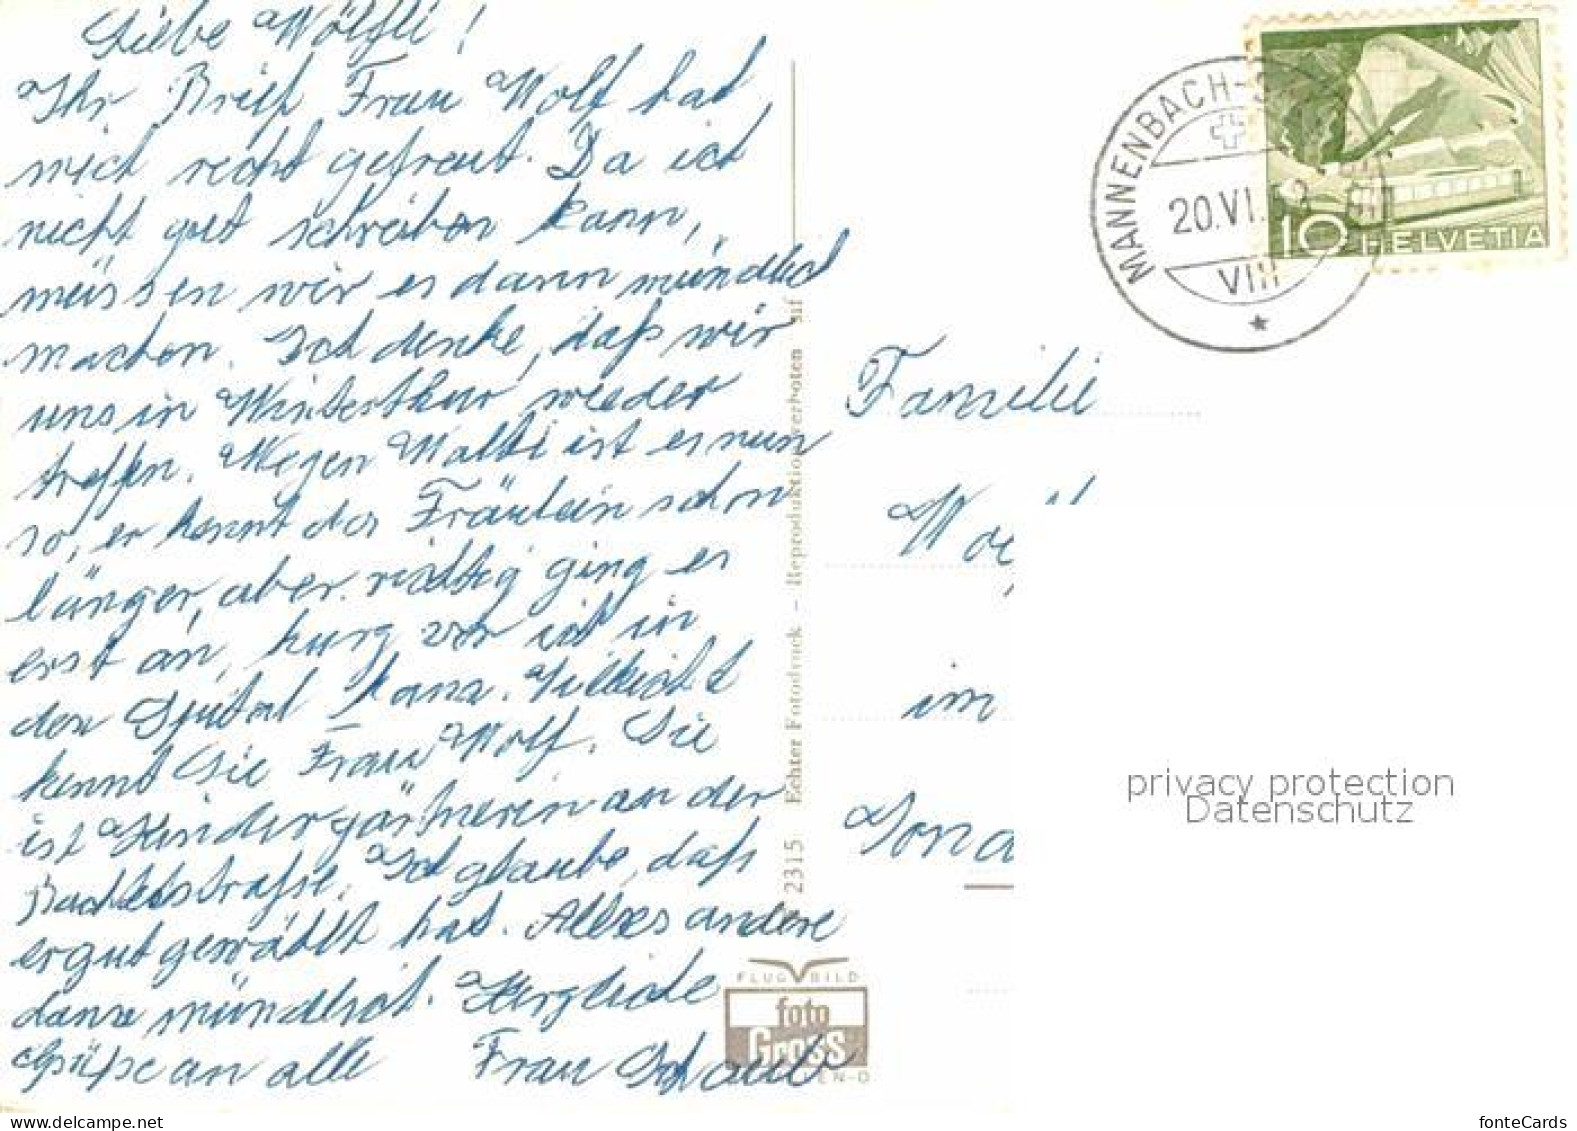 Liebe Wölfli!
Ihr Brief Frau Wolf hat
mich recht gefreut. Da ich
nicht gut schreiben kann,
müssen wir es dann mündlich
machen. Ich denke, daß wir
uns in Winterthur wieder
treffen. Wegen Walti ist es nun
so, er kennt das Fräulein schon
länger, aber richtig ging es
erst an, kurz vor ich in
den Spital kam. Vielleicht
kennt Sie Frau Wolf. Sie
ist Kindergärtnerin an der
Bachtelstraße. Ich glaube, daß
er gut gewählt hat. Alles andere
dann mündlich. Herzliche
Grüße an alle Frau Schaub
2315 Echter Fotodruck – Reproduktion verboten sif
FLUG BILD
foto
Gross
EN-D
MANNENBACH-S
20.VI.
VIII
10 HELVETIA
Familie
Wo
im
Tona
privacy protection
Datenschutz
fonteCards